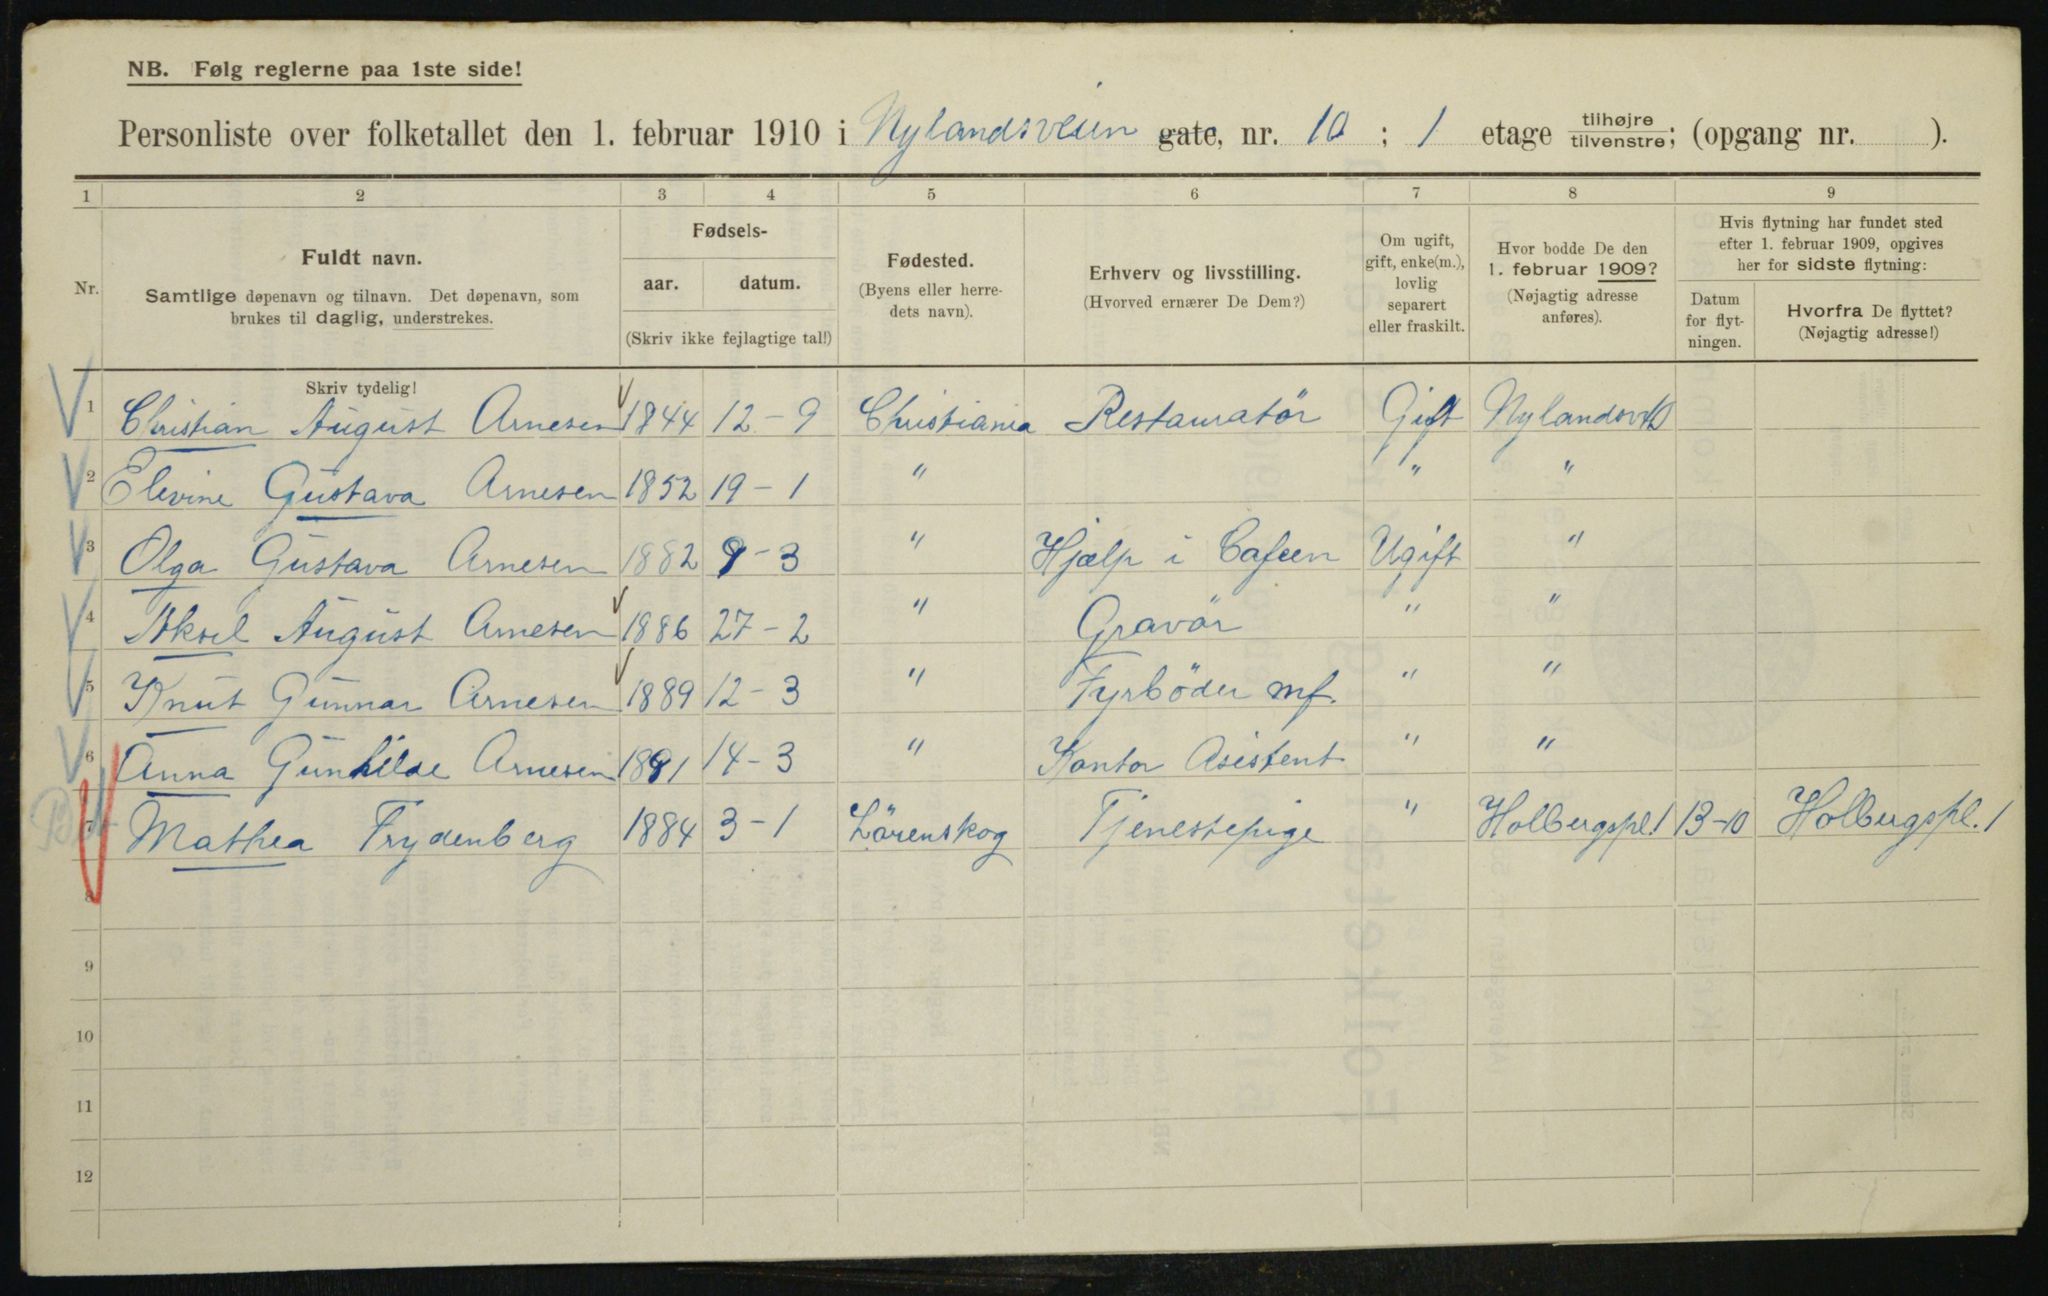 NB. Følg reglerne paa 1ste side!
Personliste over folketallet den 1. februar 1910 i Nylandsveien gate, nr. 10 ; 1 etage tilhøjre/tilvenstre; (opgang nr. ).
1 2 3 4 5 6 7 8 9
Nr.
Fuldt navn.
Samtlige døpenavn og tilnavn. Det døpenavn, som
brukes til daglig, understrekes.
Fødsels-
aar. datum.
(Skriv ikke fejlagtige tal!)
Fødested.
(Byens eller herre-
dets navn).
Erhverv og livsstilling.
(Hvorved ernærer De Dem?)
Om ugift,
gift, enke(m.),
lovlig
separert
eller fraskilt.
Hvor bodde De den
1. februar 1909?
(Nøjagtig adresse
anføres).
Hvis flytning har fundet sted
efter 1. februar 1909, opgives
her for sidste flytning:
Datum
for flyt-
ningen.
Hvorfra De flyttet?
(Nøjagtig adresse!)
Skriv tydelig!
1 Christian August Arnesen 1844 12-9 Christiania Restauratör Gift Nylandsv 10
2 Elevine Gustava Arnesen 1852 19-1 " " "
3 Olga Gustava Arnesen 1882 9-3 " Hjælp i Cafeen Ugift "
4 Aksel August Arnesen 1886 27-2 " Gravör " "
5 Knut Gunnar Arnesen 1889 12-3 " Fyrböder mf. " "
6 Anna Gunhilde Arnesen 1891 14-3 " Kontor Asistent " "
7 Mathea Frydenberg 1884 3-1 Lörenskog Tjenestepige " Holbergspl. 1 13-10 Holbergspl. 1
8
9
10
11
12